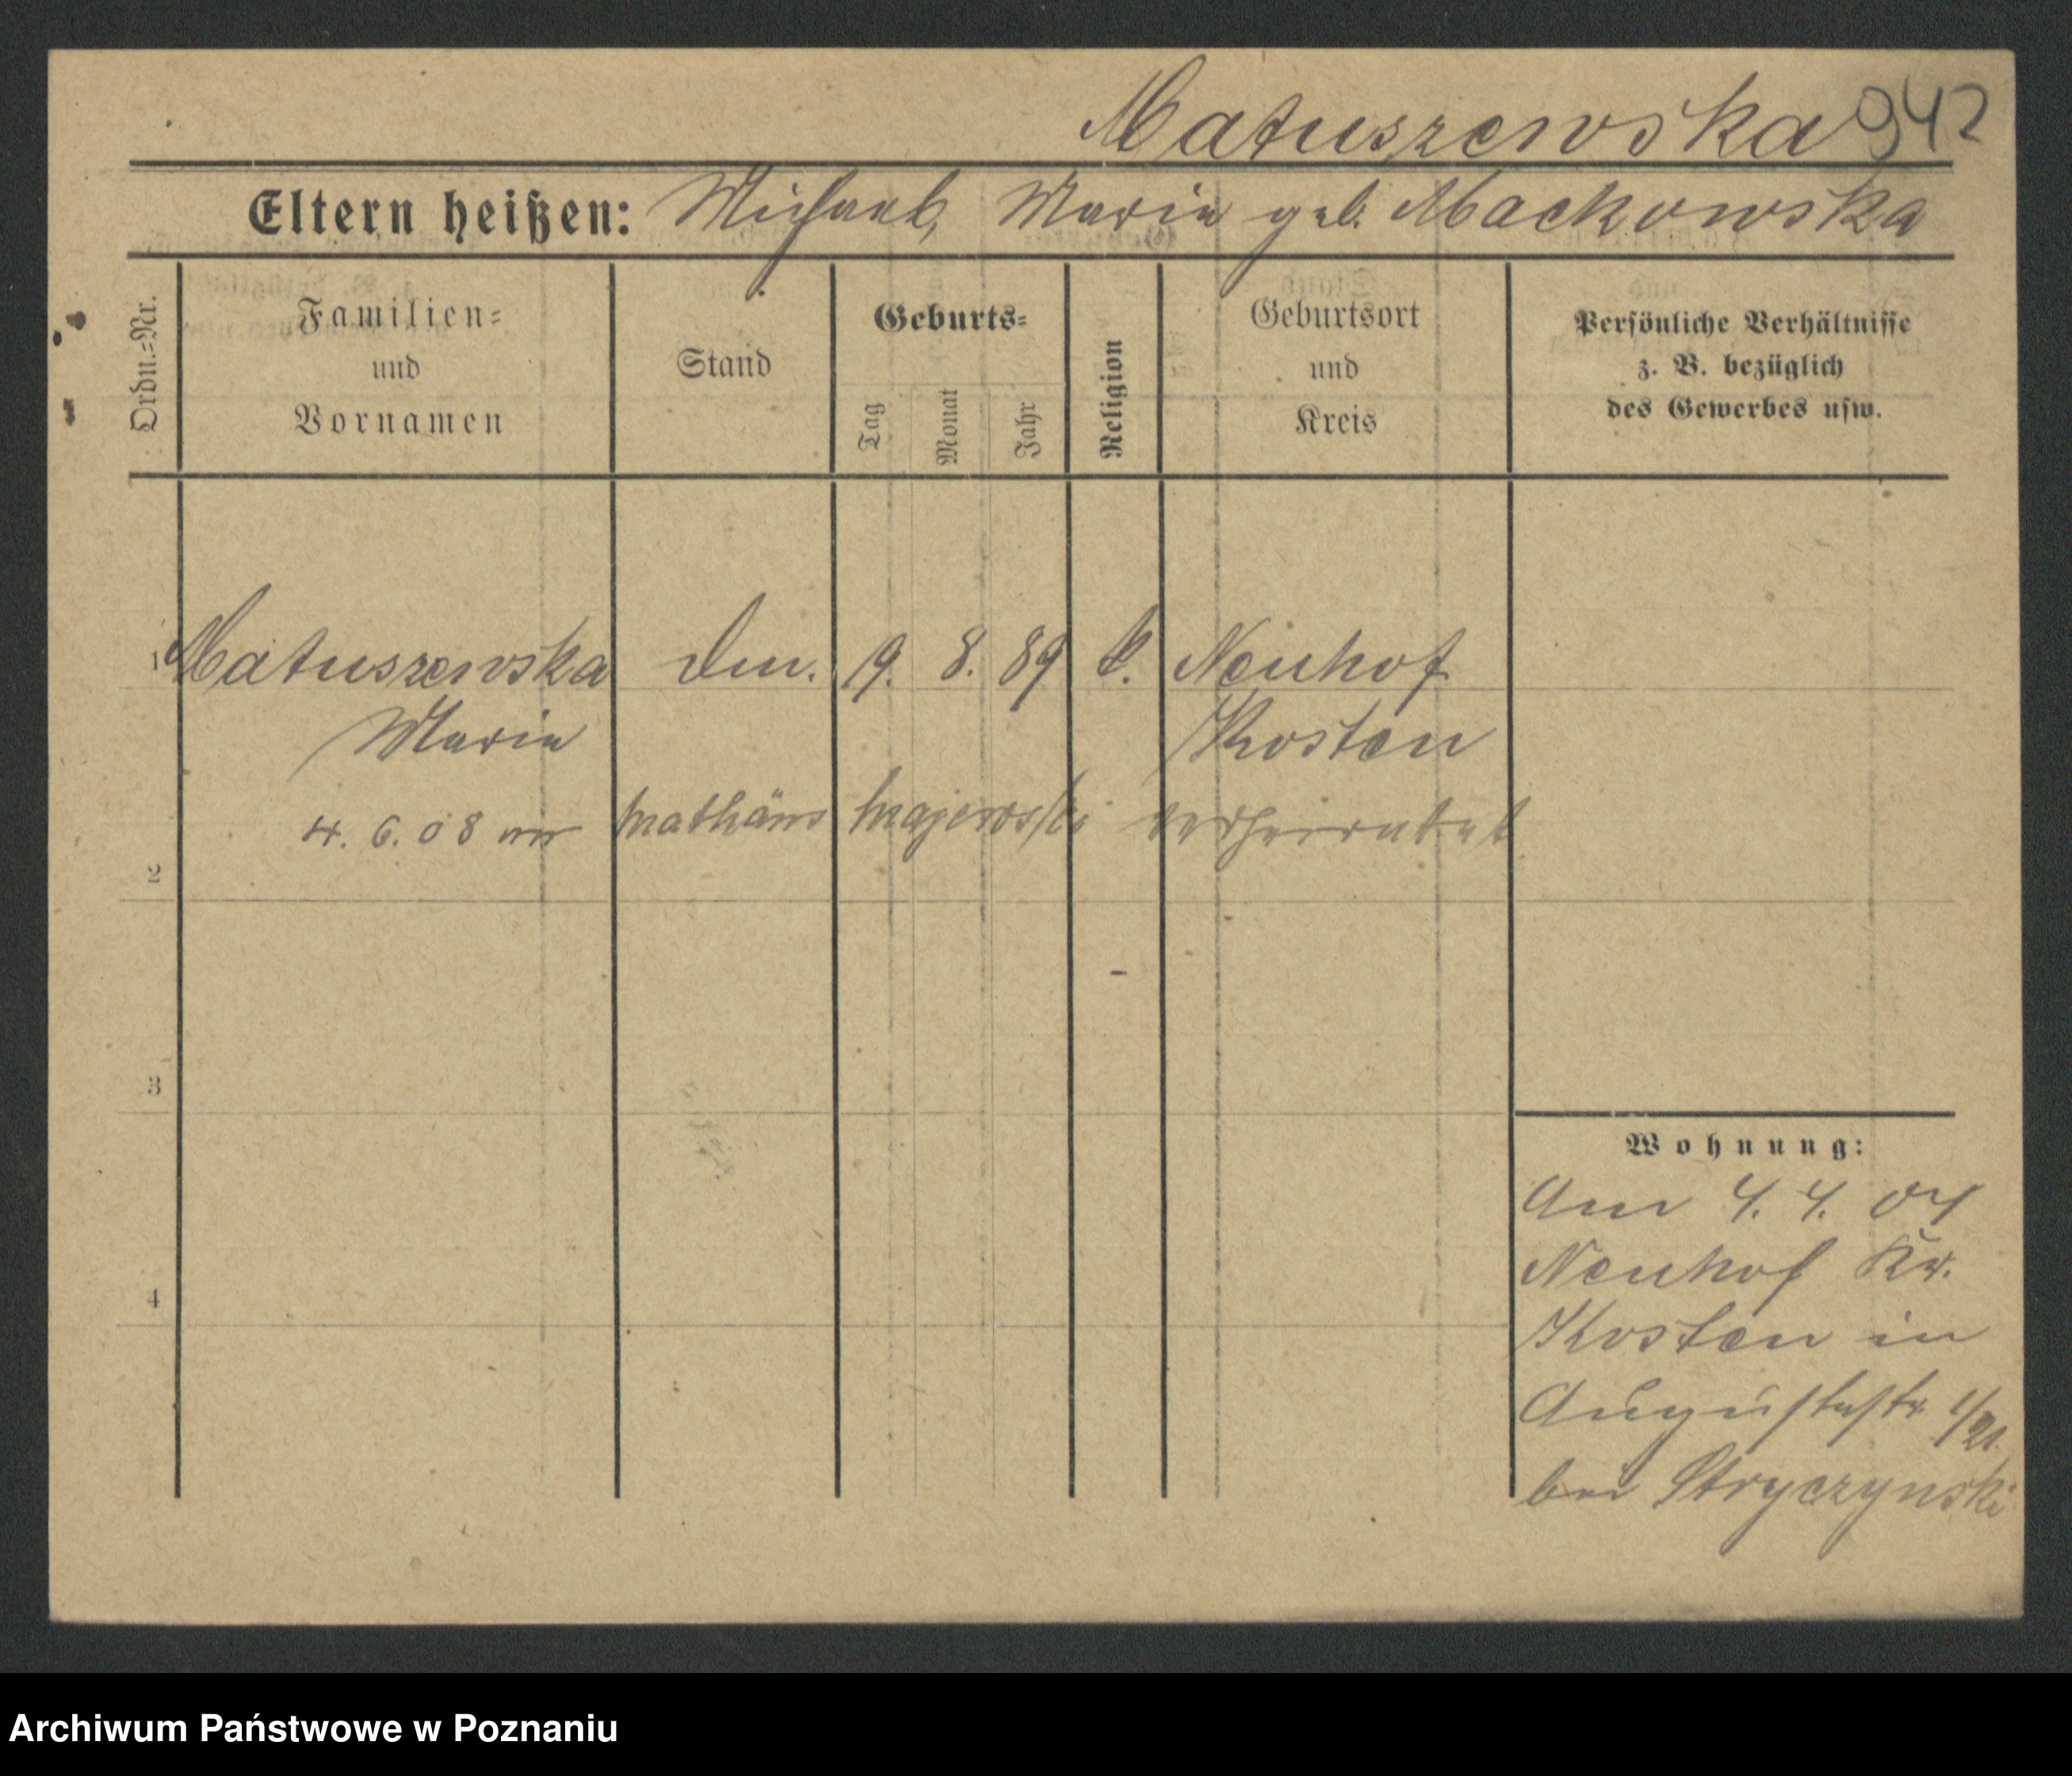 Matuszewska 942
Eltern heißen: Michael, Maria geb. Mackowska
Ordn.=Nr.
Familien=
und
Vornamen
Stand
Geburts=
Tag
Monat
Jahr
Religion
Geburtsort
und
Kreis
Persönliche Verhältnisse
z. B. bezüglich
des Gewerbes usw.
1 Matuszewska 9. 8. 89 k. Neuhof
Maria Kosten
4. 6. 08 Mathäus Majewski verheiratet
2
3
4
Wohnung:
Am 4. 4. 04
Neuhof Kr.
Kosten in
Augustastr.
bei Stryczynski
Archiwum Państwowe w Poznaniu